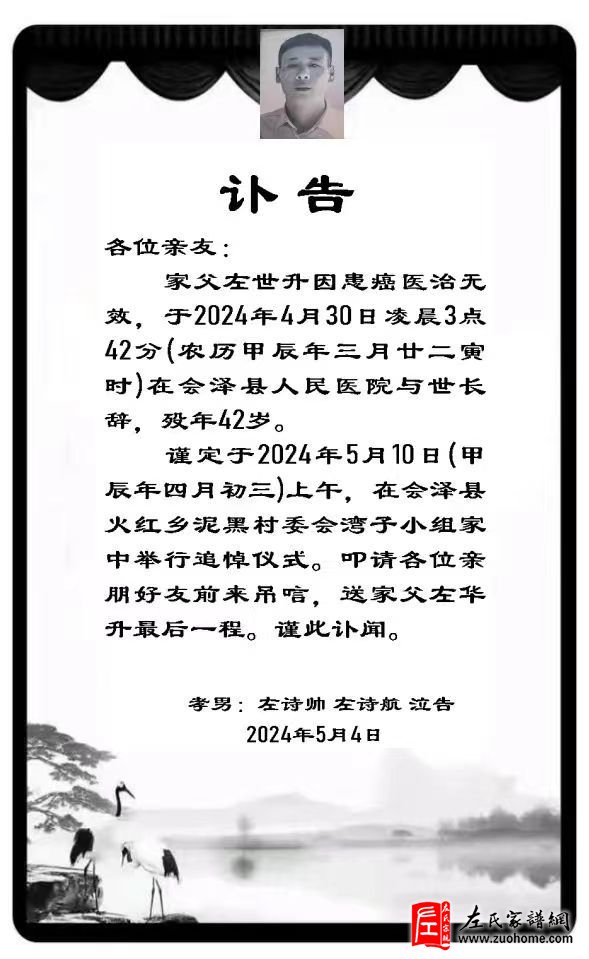 讣告
各位亲友：
家父左世升因患癌医治无
效，于2024年4月30日凌晨3点
42分(农历甲辰年三月廿二寅
时)在会泽县人民医院与世长
辞，殁年42岁。
谨定于2024年5月10日(甲
辰年四月初三)上午，在会泽县
火红乡泥黑村委会湾子小组家
中举行追悼仪式。叩请各位亲
朋好友前来吊唁，送家父左华
升最后一程。谨此讣闻。
孝男：左诗帅 左诗航 泣告
2024年5月4日
左氏家谱
左氏家譜網
www.zuohome.com